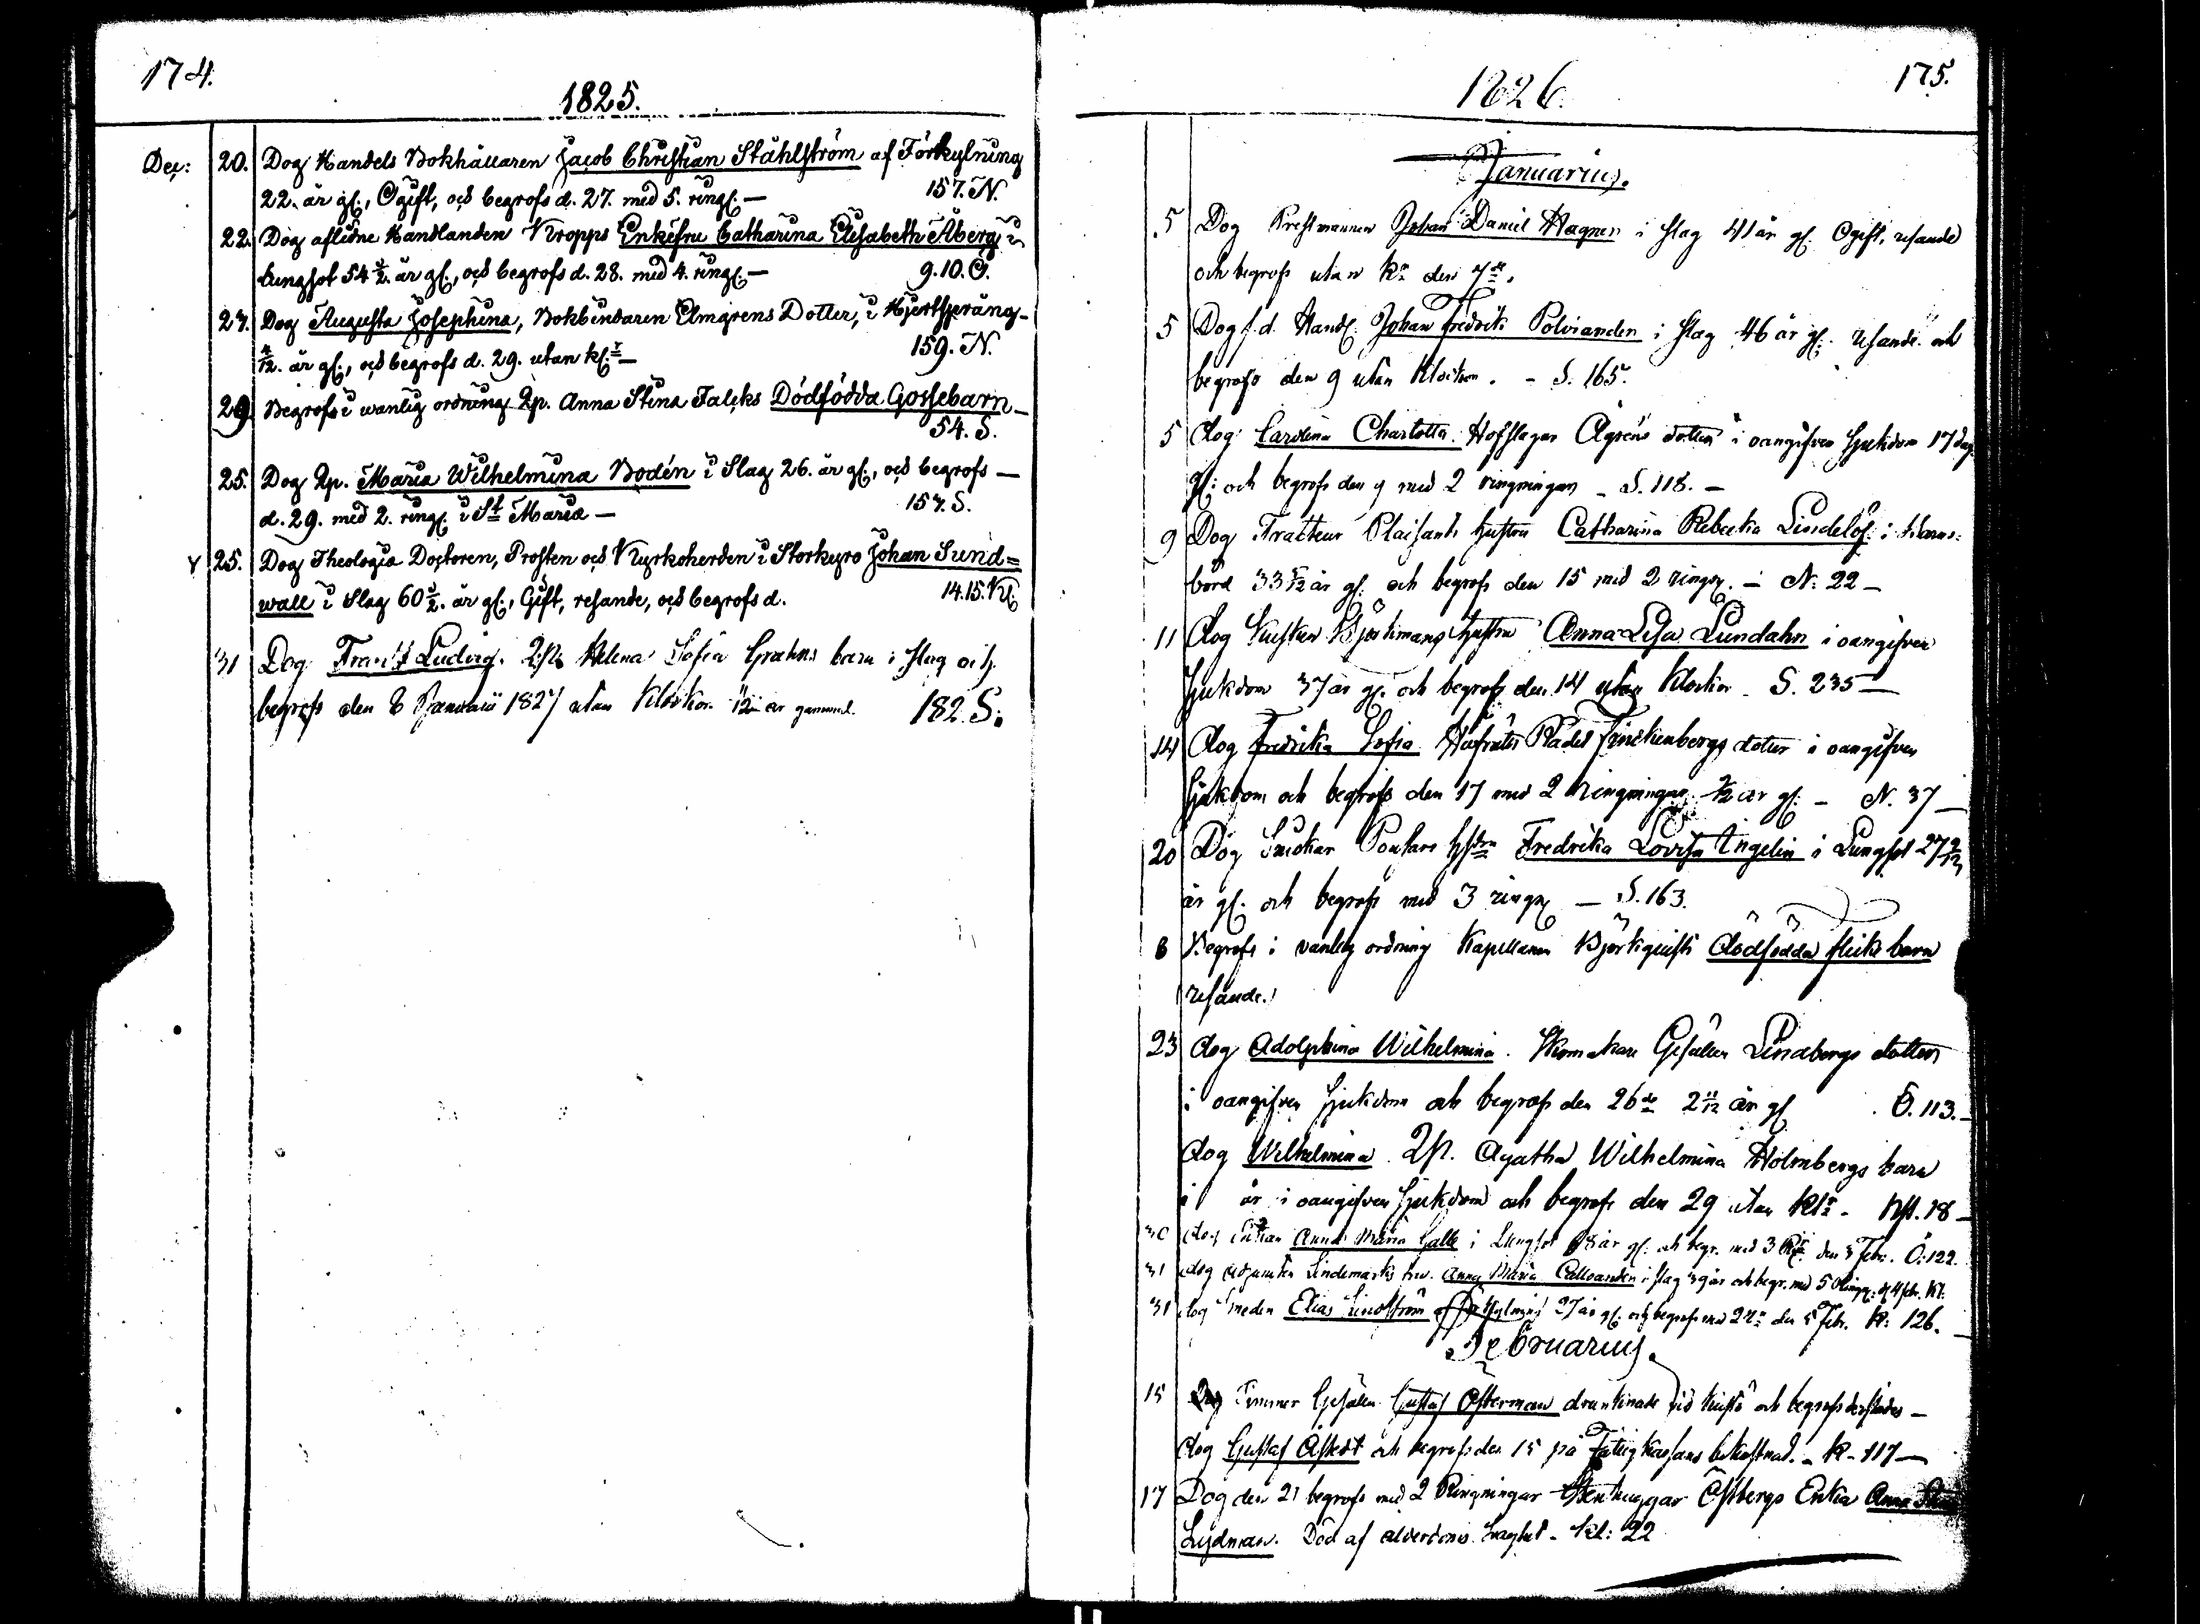 174.
1825.
Dec: 20. Dog Handels Bokhållaren Jacob Christian Ståhlström af Förkylning
22. år gl:, Ogift, och begrofs d. 27. med 5. ringr: — 157. N.
22. Dog aflidne Handlanden Kropps Enkefru Catharina Elisabeth Åberg i
Lungsot 54 1/2. år gl:, och begrofs d. 28. med 4. ringr: — 9.10. Ö.
27. Dog Augusta Josephina, Bokbindaren Elmgrens Dotter, i Hjertspräng-
4/12. år gl:, och begrofs d. 29. utan kl:r — 159. N.
29. Begrofs i wanlig ordning Qp. Anna Stina Falcks Dödfödda Gossebarn —
54. S.
25. Dog Qp. Maria Wilhelmina Bodén i Slag 26. år gl:, och begrofs —
d. 29. med 2. ringr: i St Maria — 157. S.
25. Dog Theologiæ Doctoren, Prosten och Kyrkoherden i Storkyro Johan Sund=
wall i Slag 60 1/2. år gl:, Gift, resande, och begrofs d. 14.15. Kl:
31 Dog Frantz Ludvig. Qps Helena Sofia Grahns barn i slag och
begrofs den 8 Januarii 1827 utan Klockor. /12 år gammal. 182. S.
175.
1826.
Januarius.
5 Dog Prestmannen Johan Daniel Hagner i slag 41 år gl: Ogift, resande
och begrofs utan Kr den 7de.
5 Dog f.d. Handl: Johan Fredrik Polviander i slag 46 år gl: resande och
begrofs den 9 utan Klockor. - S. 165.
5 Dog Carolina Charlotta Hofslagar Ågréns dotter i oangifven sjukdom 17 dag
gl: och begrofs den 9 med 2 ringningar - S. 118. -
9 Dog Tracteur Plaisants hustru Catharina Rebecka Lindelöf i barns-
börd 33 5/12 år gl: och begrofs den 15 med 2 ringr. - N: 22 -
11 Dog Kusken Björkmans hustru Anna Lisa Lundahn i oangifven
sjukdom 37 år gl: och begrofs den 14 utan Klockor - S. 235 -
14 Dog Fredrika Sofia Hofråts Rådet Trinkenbergs dotter i oangifven
sjukdom och begrofs den 17 med 2 Ringningar, /12 år gl: - N. 37 -
20 Dog Snickar hstru Fredrika Lovisa Engelin i Lungsot 27 2/12
år gl: och begrofs med 3 ringr - S. 163.
8 Begrofs i vanlig ordning Kapellanen Björkquists dödfödda flicke barn
resande.
23 Dog Adolphina Wilhelmina. Skomakare Gesällen Lindbergs dotter
i oangifven sjukdom och begrofs den 26de 2 11/12 år gl Ö. 113. -
Dog Wilhelmina Qp. Agatha Wilhelmina Holmbergs barn
i år i oangifven sjukdom och begrofs den 29 utan Klr - Kl. 18 -
30 Dog Enkan Anna Maria Galle i Lungsot 68 år gl: och begr. med 3 Rr den 3 Febr. Ö. 122.
31 Dog Adjuncten Lindemarks hu. Anna Maria i slag 39 år och begr. med 5 Ringr. d 4 feb. Kl:
31 Dog Smeden Elias Lindström af förkylning 27 år gl: och begrofs med 2 r: den 5 Febr. K: 126.
Februarius.
15 Dog Timmer Gesällen Gustaf Österman drunknade vid Kustö och begrofs derstädes -
Dog Gustaf Åstedt och begrofs den 15 på Fattig Kassans bekostnad. - K - 117 -
17 Dog den 21 begrofs med 2 Ringningar Stenhuggar Östbergs Enka Anna
Lydman. Död af ålderdoms svaghet - Kl: 22